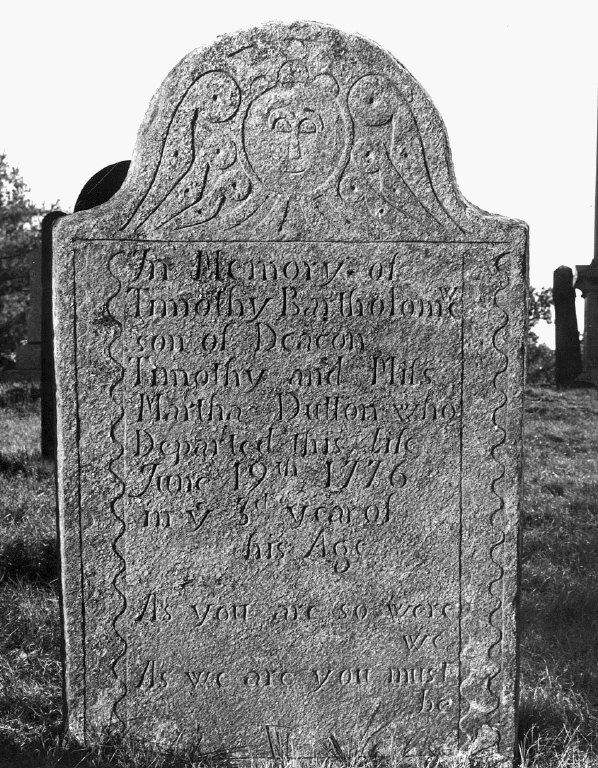 In Memory of
Timothy Bartholomʷ
son of Deacon
Timothy and Mſſs
Martha Dutton who
Departed this life
June 19ᵗʰ 1776
in yͤ 3ᵈ year of
his Age
As you are so were
we
As we are you must
be